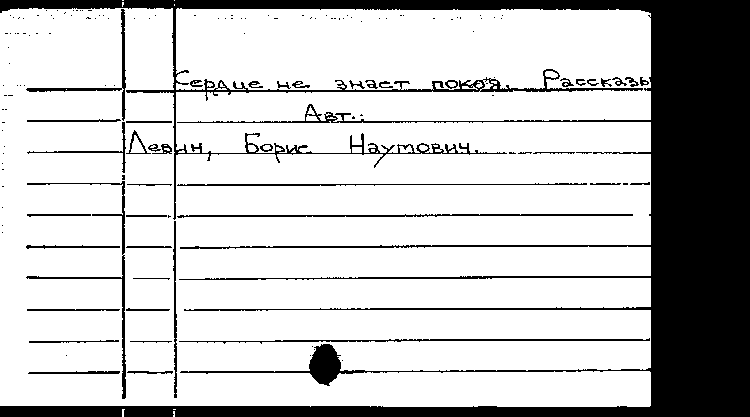 Сердце не знает покоя. Рассказы
Авт.:
Левин, Борис Наумович.